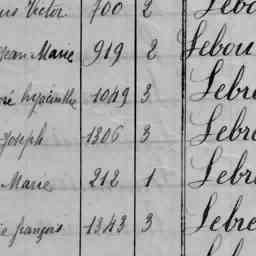 Victor 700 2 Lebo
Jean Marie 919 2 Lebou
Hyacinthe 1049 3 Lebre
Joseph 1306 3 Lebre
Marie 212 1 Lebre
françois 1343 3 Lebre